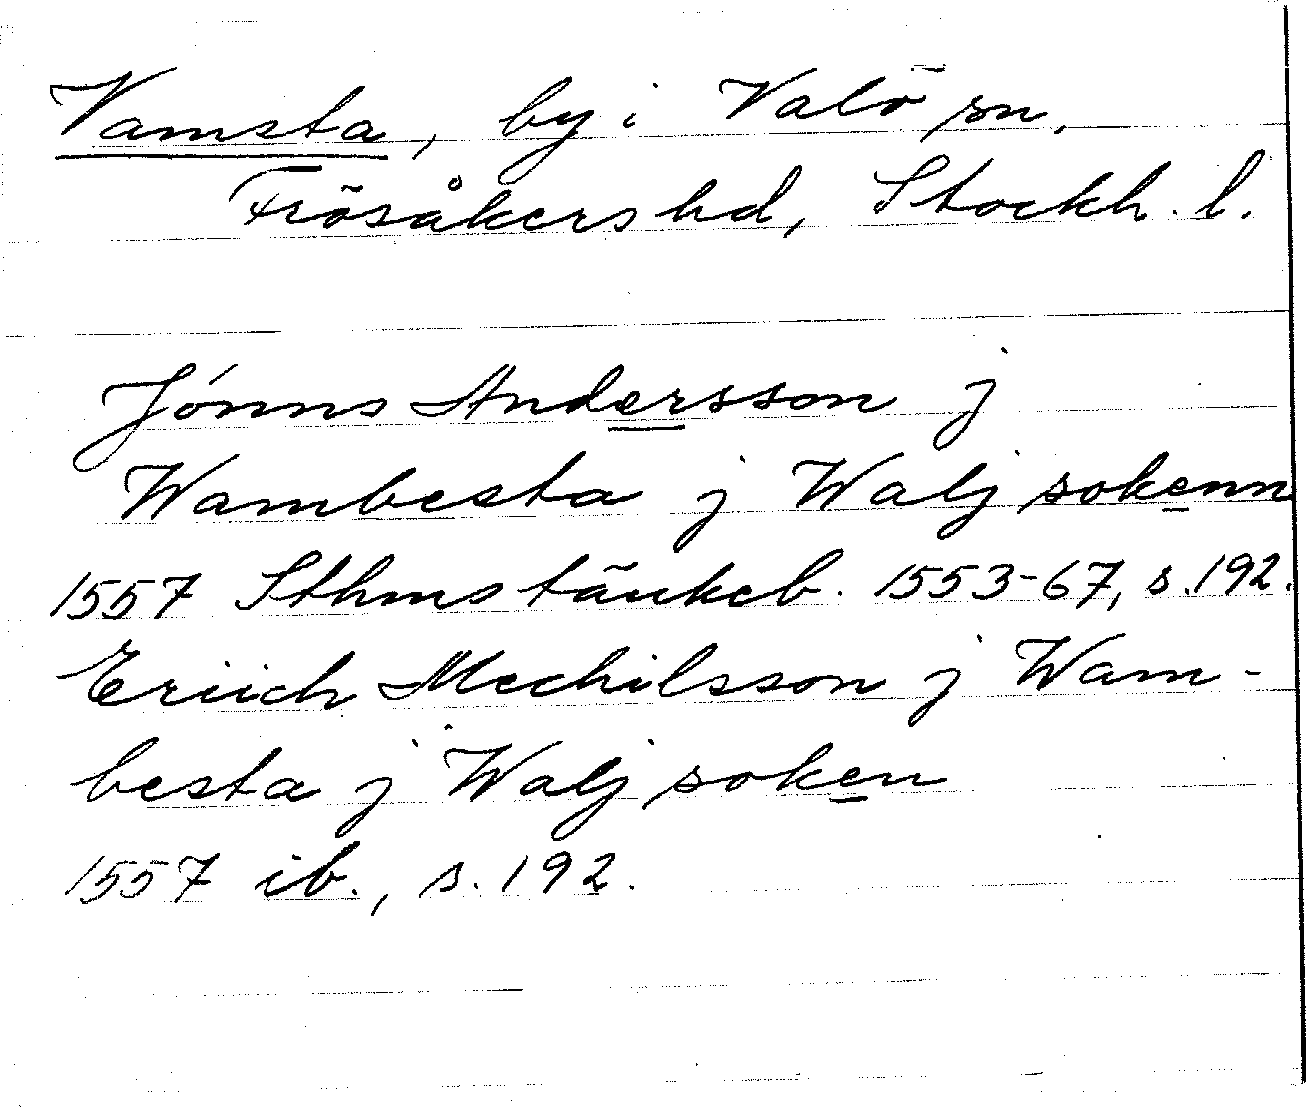 Vamsta, by i Valö sn,
Frösåkers hd, Stockh. l.
Jónns Andersson j
Wambesta j Walj sokenn
1557 Sthms tänkeb. 1553-67, s. 192.
Eriich Mechilsson j Wam-
besta j Walj soken
1557 ib., s. 192.